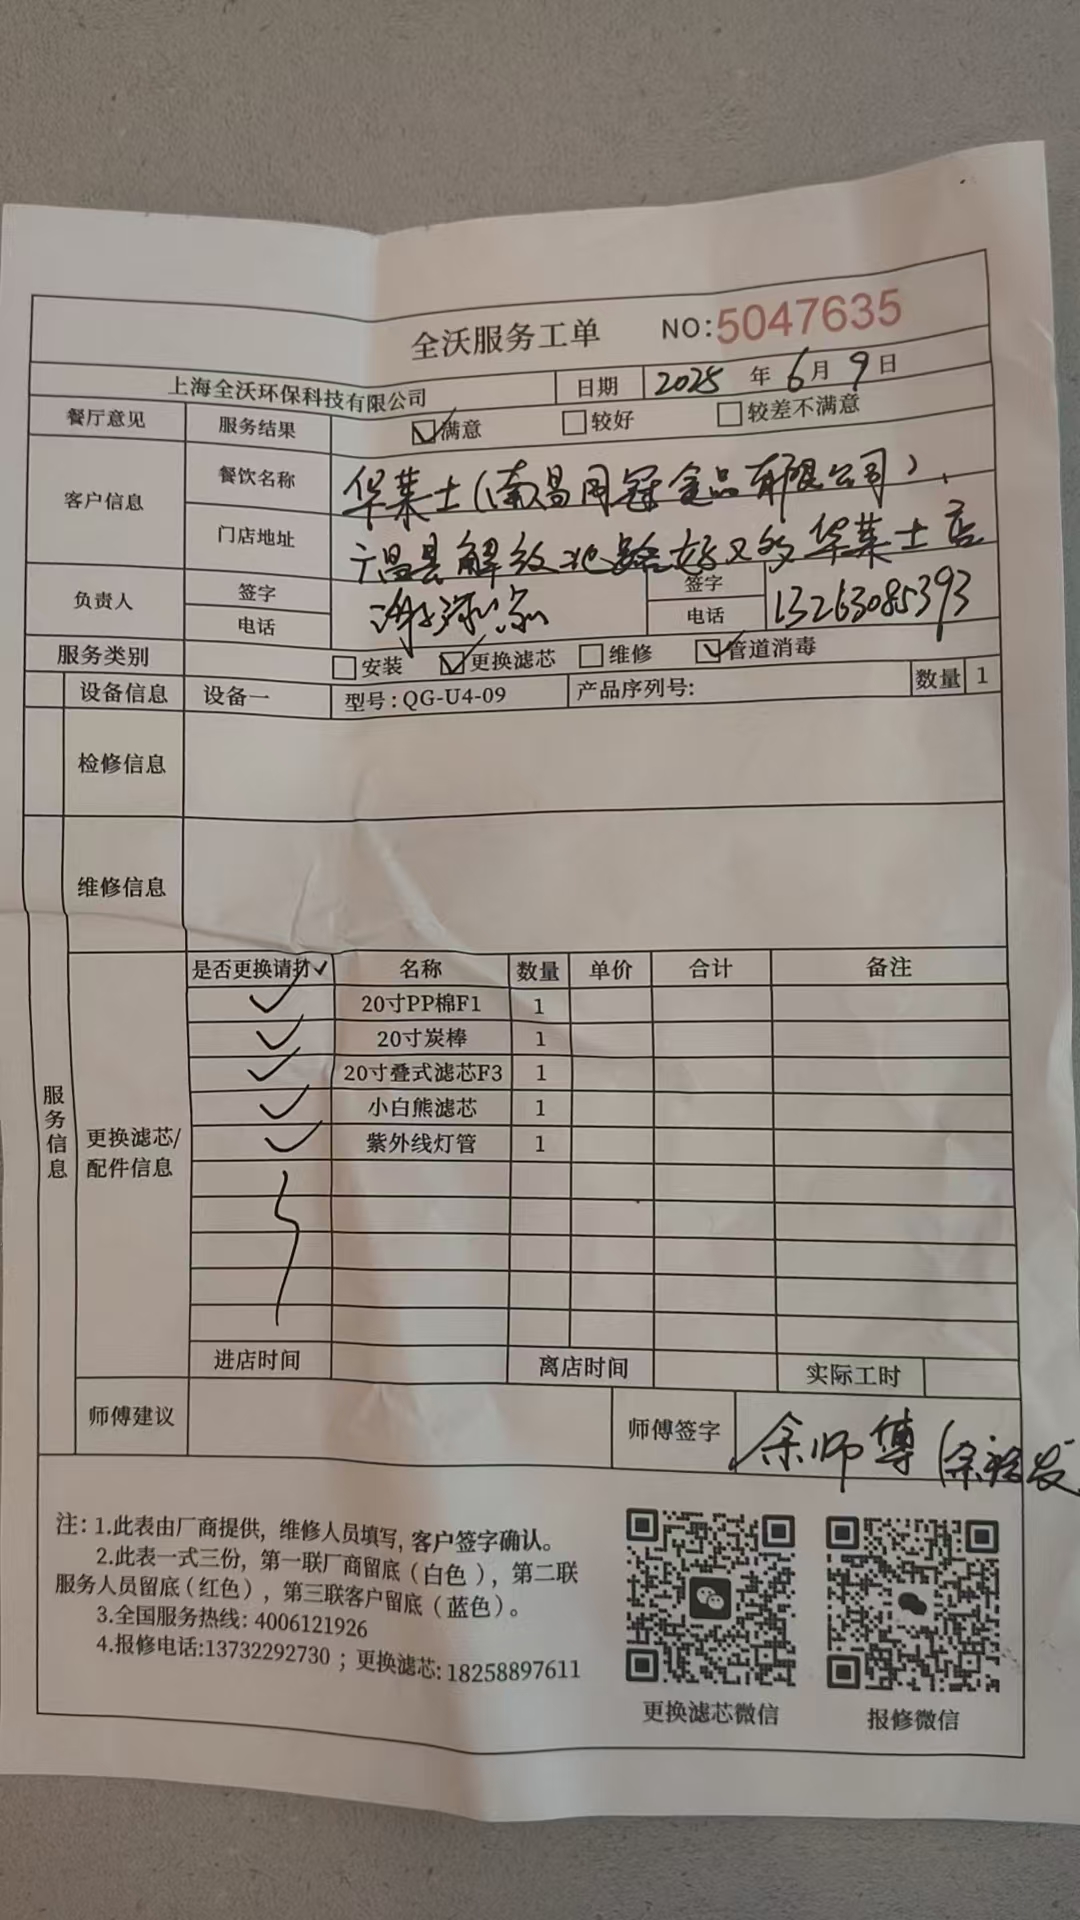 全沃服务工单 NO:5047635
上海全沃环保科技有限公司 日期 2025 年 6 月 9 日
餐厅意见 服务结果 满意 较好 较差不满意
客户信息 餐饮名称 华莱士(南昌同冠食品有限公司)
门店地址 广昌县解放北路好又多华莱士店
负责人 签字 签字
电话 电话 13263085393
服务类别 安装 更换滤芯 维修 管道消毒
设备信息 设备一 型号:QG-U4-09 产品序列号: 数量 1
检修信息
维修信息
服务信息
更换滤芯/
配件信息
是否更换请打✓ 名称 数量 单价 合计 备注
✓ 20寸PP棉F1 1
✓ 20寸炭棒 1
✓ 20寸叠式滤芯F3 1
✓ 小白熊滤芯 1
✓ 紫外线灯管 1
进店时间 离店时间 实际工时
师傅建议 师傅签字 余师傅(余裕发
注:1.此表由厂商提供,维修人员填写,客户签字确认。
2.此表一式三份,第一联厂商留底(白色),第二联
服务人员留底(红色),第三联客户留底(蓝色)。
3.全国服务热线:4006121926
4.报修电话:13732292730;更换滤芯:18258897611
更换滤芯微信 报修微信